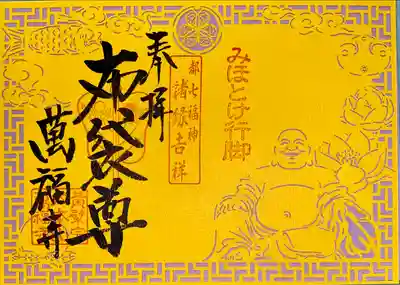 みほとけ行脚
都七福神
諸縁吉祥
奉拝
布袋尊
萬福寺